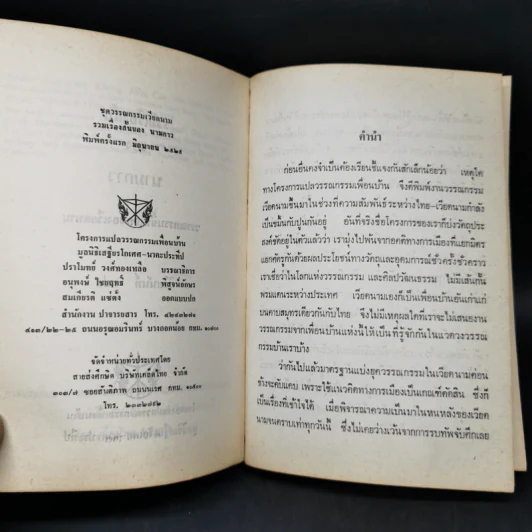 ชุดวรรณกรรมเวียดนาม
รวมเรื่องสั้นของ นามกาว
พิมพ์ครั้งแรก มิถุนายน ๒๕๒๕
โครงการแปลวรรณกรรมเพื่อนบ้าน
มูลนิธิเสฐียรโกเศศ-นาคะประทีป
ปราโมทย์ วงศ์ทองเหลือ บรรณาธิการ
อนุพงษ์ ไชยฤทธิ์ พิสูจน์อักษร
สมเกียรติ แซ่ตั้ง ออกแบบปก
สำนักงาน ปาจารยสาร โทร.
ถนนอรุณอมรินทร์ บางกอกน้อย กทม.
จัดจำหน่ายทั่วประเทศโดย
สายส่งศึกษิต บริษัทเคล็ดไทย จำกัด
ซอยสันติภาพ ถนนนเรศ กทม. ๑๐๕๐๐
โทร.
คำนำ
ก่อนอื่นคงจำเป็นต้องเรียนชี้แจงกันสักเล็กน้อยว่า เหตุใด
ทางโครงการแปลวรรณกรรมเพื่อนบ้าน จึงตีพิมพ์งานวรรณกรรม
เวียดนามขึ้นมาในช่วงที่ความสัมพันธ์ ระหว่างไทย-เวียดนามกำลัง
เป็นขมิ้นกับปูนกันอยู่ อันที่จริงชื่อโครงการของเราก็บ่งวัตถุประ
สงค์ชัดอยู่ในตัวแล้วว่า เรามุ่งไปพ้นจากอคติทางการเมืองที่แยกมิตร
แยกศัตรูกันด้วยผลประโยชน์ทางวัตถุและอุดมการณ์ชั่วครั้งชั่วคราว
เราเชื่อว่าในโลกแห่งวรรณกรรม และศิลปวัฒนธรรม ไม่มีเส้นกั้น
พรมแดนระหว่างประเทศ เวียดนามเองก็เป็นเพื่อนบ้านอันเก่าแก่
บนคาบสมุทรเดียวกันกับไทย จึงไม่มีเหตุผลใดที่เราจะไม่เสนองาน
วรรณกรรมจากเพื่อนบ้านแห่งนี้ให้เป็น ที่รู้จักกันในแวดวงวรรณ
กรรมบ้านเราบ้าง
ว่ากันไปแล้วมาตรฐานแบ่งยุควรรณกรรมในเวียดนามค่อน
ข้างจะคับแคบ เพราะใช้แนวคิดทางการเมืองเป็นเกณฑ์ตัดสิน ซึ่งก็
เป็นเรื่องที่เข้าใจได้ เมื่อพิจารณาความเป็นมาในหนหลังของเวียด
นามจนตราบเท่าทุกวันนี้ ซึ่งไม่เคยว่างเว้นจากการรบทัพจับศึกเลย